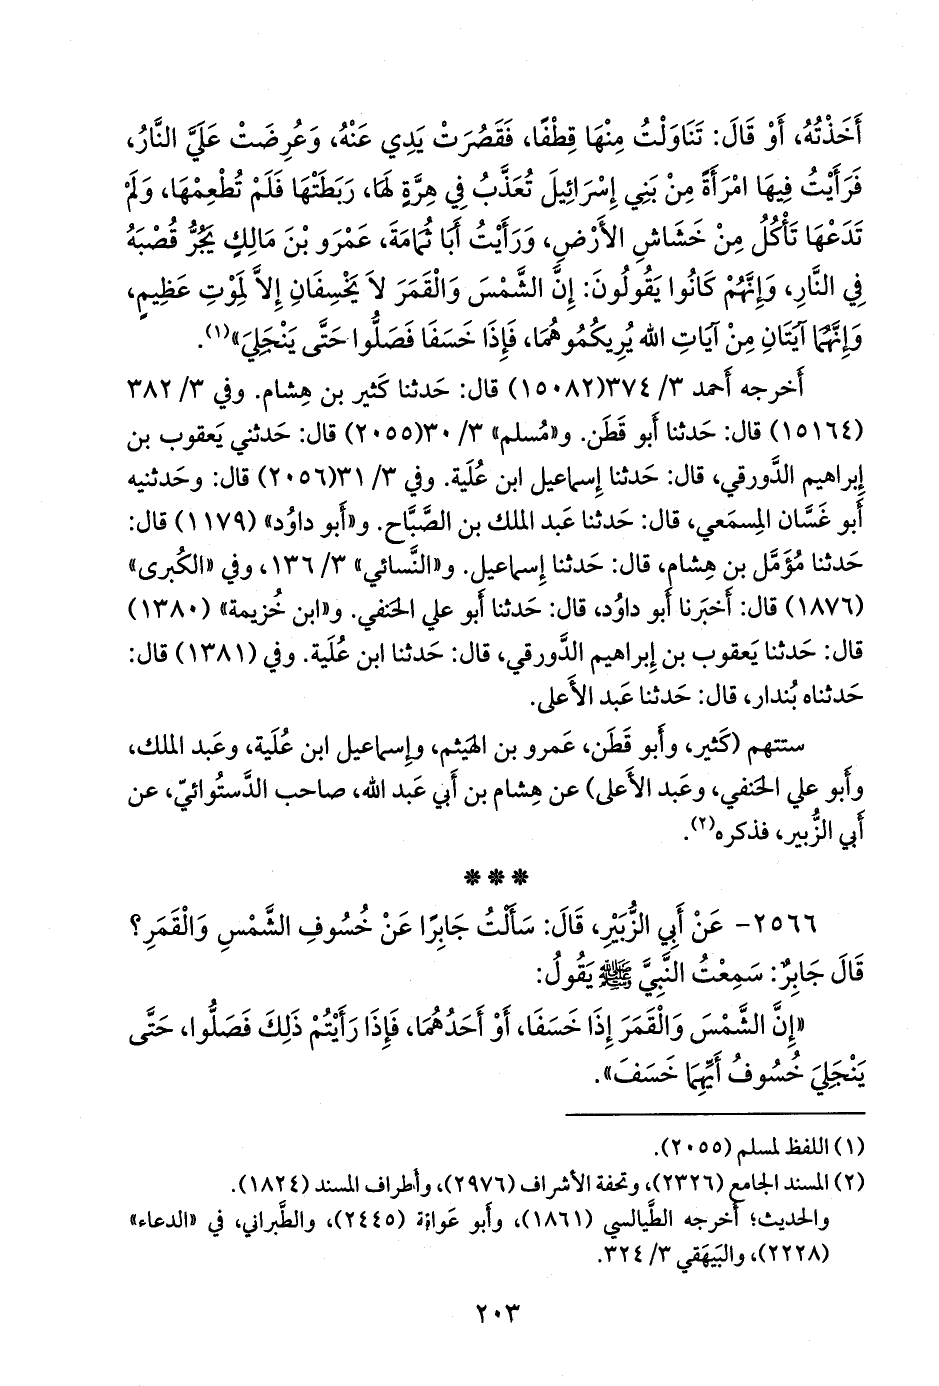 أَخَذْتُهُ، أَوْ قَالَ: تَنَاوَلْتُ مِنْهَا قِطْفًا، فَقَصُرَتْ يَدِي عَنْهُ، وَعُرِضَتْ عَلَيَّ النَّارُ،
فَرَأَيْتُ فِيهَا امْرَأَةً مِنْ بَنِي إِسْرَائِيلَ تُعَذَّبُ فِي هِرَّةٍ لَهَا، رَبَطَتْهَا فَلَمْ تُطْعِمْهَا، وَلَمْ
تَدَعْهَا تَأْكُلُ مِنْ خَشَاشِ الأَرْضِ، وَرَأَيْتُ أَبَا ثُمَامَةَ، عَمْرَو بْنَ مَالِكٍ يَجُرُّ قُصْبَهُ
فِي النَّارِ، وَإِنَّهُمْ كَانُوا يَقُولُونَ: إِنَّ الشَّمْسَ وَالْقَمَرَ لاَ يَخْسِفَانِ إِلاَّ لِمَوْتِ عَظِيمٍ،
وَإِنَّهُمَا آيَتَانِ مِنْ آيَاتِ الله يُرِيكُمُوهُمَا، فَإِذَا خَسَفَا فَصَلُّوا حَتَّى يَنْجَلِيَ»(١).
أَخرجه أَحمد ٣/ ٣٧٤(١٥٠٨٢) قال: حَدثنا كَثير بن هِشام. وفي ٣/ ٣٨٢
(١٥١٦٤) قال: حَدثنا أَبو قَطَن. و«مُسلم» ٣/ ٣٠(٢٠٥٥) قال: حَدثني يَعقوب بن
إِبراهيم الدَّورقي، قال: حَدثنا إِسماعيل ابن عُلَية. وفي ٣/ ٣١(٢٠٥٦) قال: وحَدثنيه
أَبو غَسَّان المِسمَعي، قال: حَدثنا عَبد الملك بن الصَّبَّاح. و«أَبو داوُد» (١١٧٩) قال:
حَدثنا مُؤَمَّل بن هِشام، قال: حَدثنا إِسماعيل. و«النَّسائي» ٣/ ١٣٦، وفي «الكُبرى»
(١٨٧٦) قال: أَخبَرنا أَبو داوُد، قال: حَدثنا أَبو علي الحَنفي. و«ابن خُزيمة» (١٣٨٠)
قال: حَدثنا يَعقوب بن إِبراهيم الدَّورقي، قال: حَدثنا ابن عُلَية. وفي (١٣٨١) قال:
حَدثناه بُندار، قال: حَدثنا عَبد الأَعلى.
ستتهم (كَثير، وأَبو قَطَن، عَمرو بن الهَيثم، وإِسماعيل ابن عُلَية، وعَبد الملك،
وأَبو علي الحَنفي، وعَبد الأَعلى) عن هِشام بن أَبي عَبد الله، صاحب الدَّستُوائيّ، عن
أَبي الزُّبير، فذكره(٢).
***
٢٥٦٦- عَنْ أَبِي الزُّبَيْرِ، قَالَ: سَأَلْتُ جَابِرًا عَنْ خُسُوفِ الشَّمْسِ وَالْقَمَرِ؟
قَالَ جَابِرٌ: سَمِعْتُ النَّبِيَّ ﷺ يَقُولُ:
«إِنَّ الشَّمْسَ وَالْقَمَرَ إِذَا خَسَفَا، أَوْ أَحَدُهُمَا، فَإِذَا رَأَيْتُمْ ذَلِكَ فَصَلُّوا، حَتَّى
يَنْجَلِيَ خُسُوفُ أَيِّهِمَا خَسَفَ».
(١) اللفظ لمسلم (٢٠٥٥).
(٢) المسند الجامع (٢٣٢٦)، وتحفة الأشراف (٢٩٧٦)، وأطراف المسند (١٨٢٤).
والحديث؛ أخرجه الطَّيالسي (١٨٦١)، وأبو عَوانة (٢٤٤٥)، والطَّبراني، في «الدعاء»
(٢٢٢٨)، والبَيهَقي ٣/ ٣٢٤.
٢٠٣